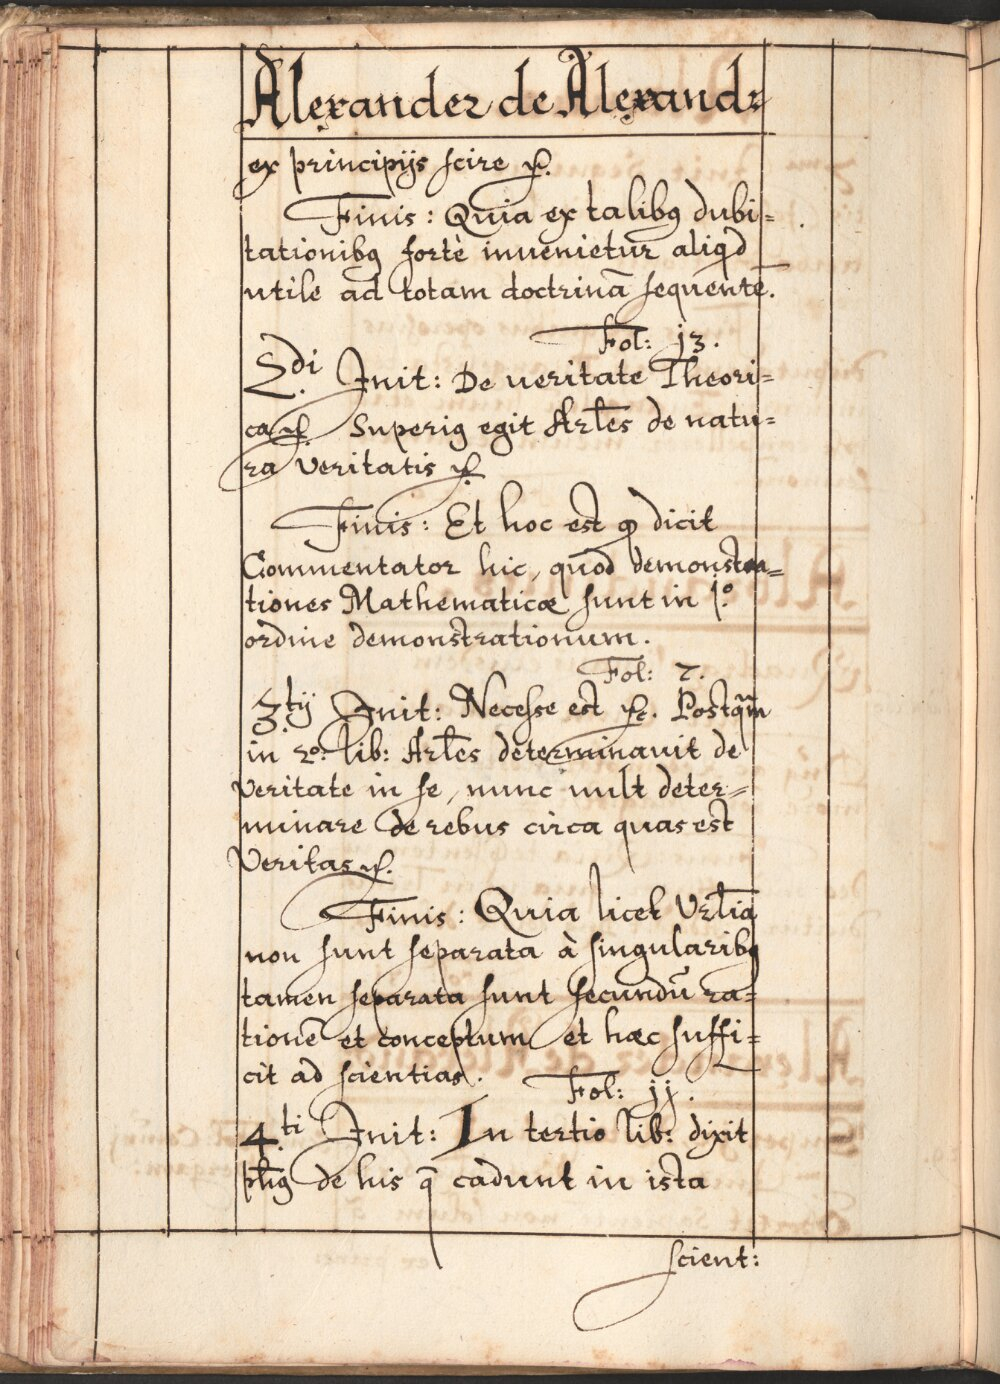 Alexander de Alexand:
ex principijs scire &c.
Finis: Quia ex talibꝯ dubi=
tationibꝯ fortè inuenietur aliqd
utile ad totam doctrinā sequentē.
Fol: 13.
2di Init: De ueritate Theori=
ca &c. Superiꝯ egit Arles de natu=
ra veritatis &c.
Finis: Et hoc est qd dicit
Commentator hic, quod demonstra=
tiones Mathematicæ sunt in 1.o
ordine demonstrationum.
Fol: 7.
3.tij Init: Necesse est &c. Postqm
in 2o. lib: Arles determinauit de
veritate in se, nunc uult deter=
minare de rebus circa quas est
veritas &c.
Finis: Quia licet Vrlia
non sunt separata à singularibꝯ
tamen separata sunt secundū ra=
tionē et conceptum et hæc suffi=
cit ad scientias.
Fol: 11.
4.ti Init: In tertio lib: dixit
phꝯ de his q̄ cadunt in ista
scient: